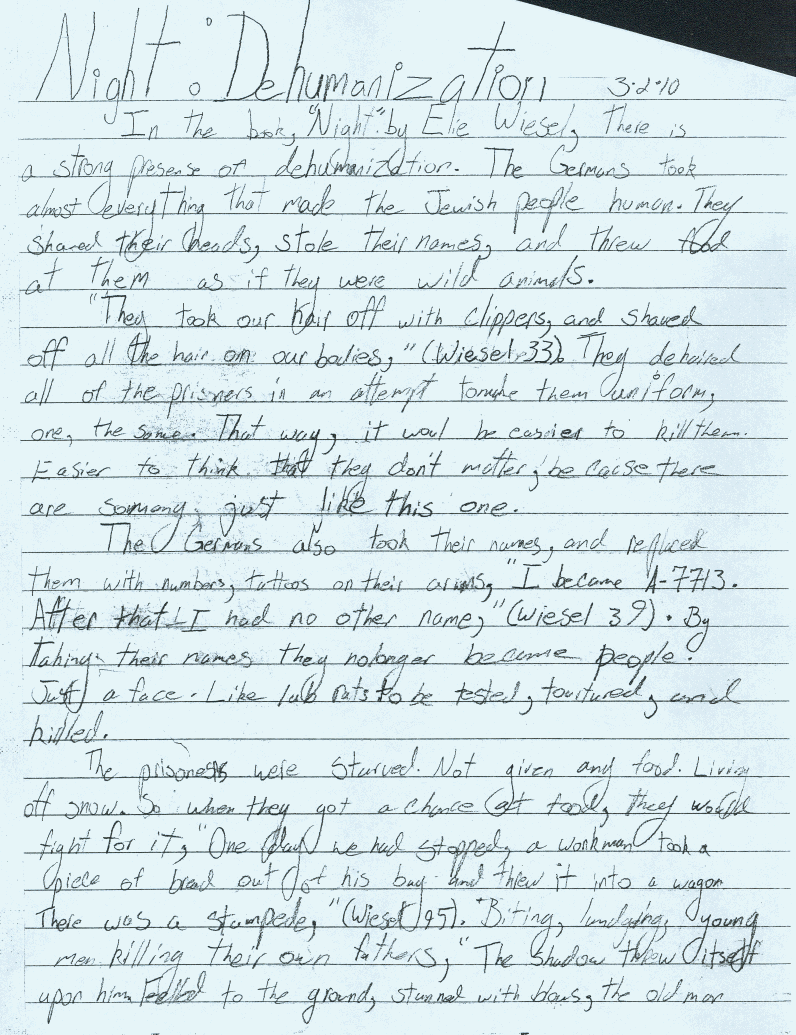 Night: Dehumanization 3-2-10
In the book, "Night" by Elie Wiesel, there is
a strong presense of dehumanization. The Germans took
almost everything that made the Jewish people human. They
shaved their heads, stole their names, and threw food
at them as if they were wild animals.
"They took our hair off with clippers, and shaved
off all the hair on our bodies," (Wiesel 33). They dehaired
all of the prisners in an attempt to make them uniform,
one, the same. That way, it woul be easier to kill them.
Easier to think that they don't matter, be cause there
are somany just like this one.
The Germans also took their names, and replaced
them with numbers, tattoos on their arms, "I became A-7713.
After that I had no other name," (Wiesel 39). By
taking their names they nolonger became people.
Just a face. Like lab rats to be tested, tourtured, and
killed.
The prisoners were starved. Not given any food. Living
off snow. So when they got a chance at food, they would
fight for it, "One day we had stopped, a workman took a
piece of bread out of his bag and threw it into a wagon
There was a stampede," (Wiesel 95). Biting, young
men killing their own fathers, "The shadow threw itself
upon him. Felled to the ground, stunned with blows, the old man